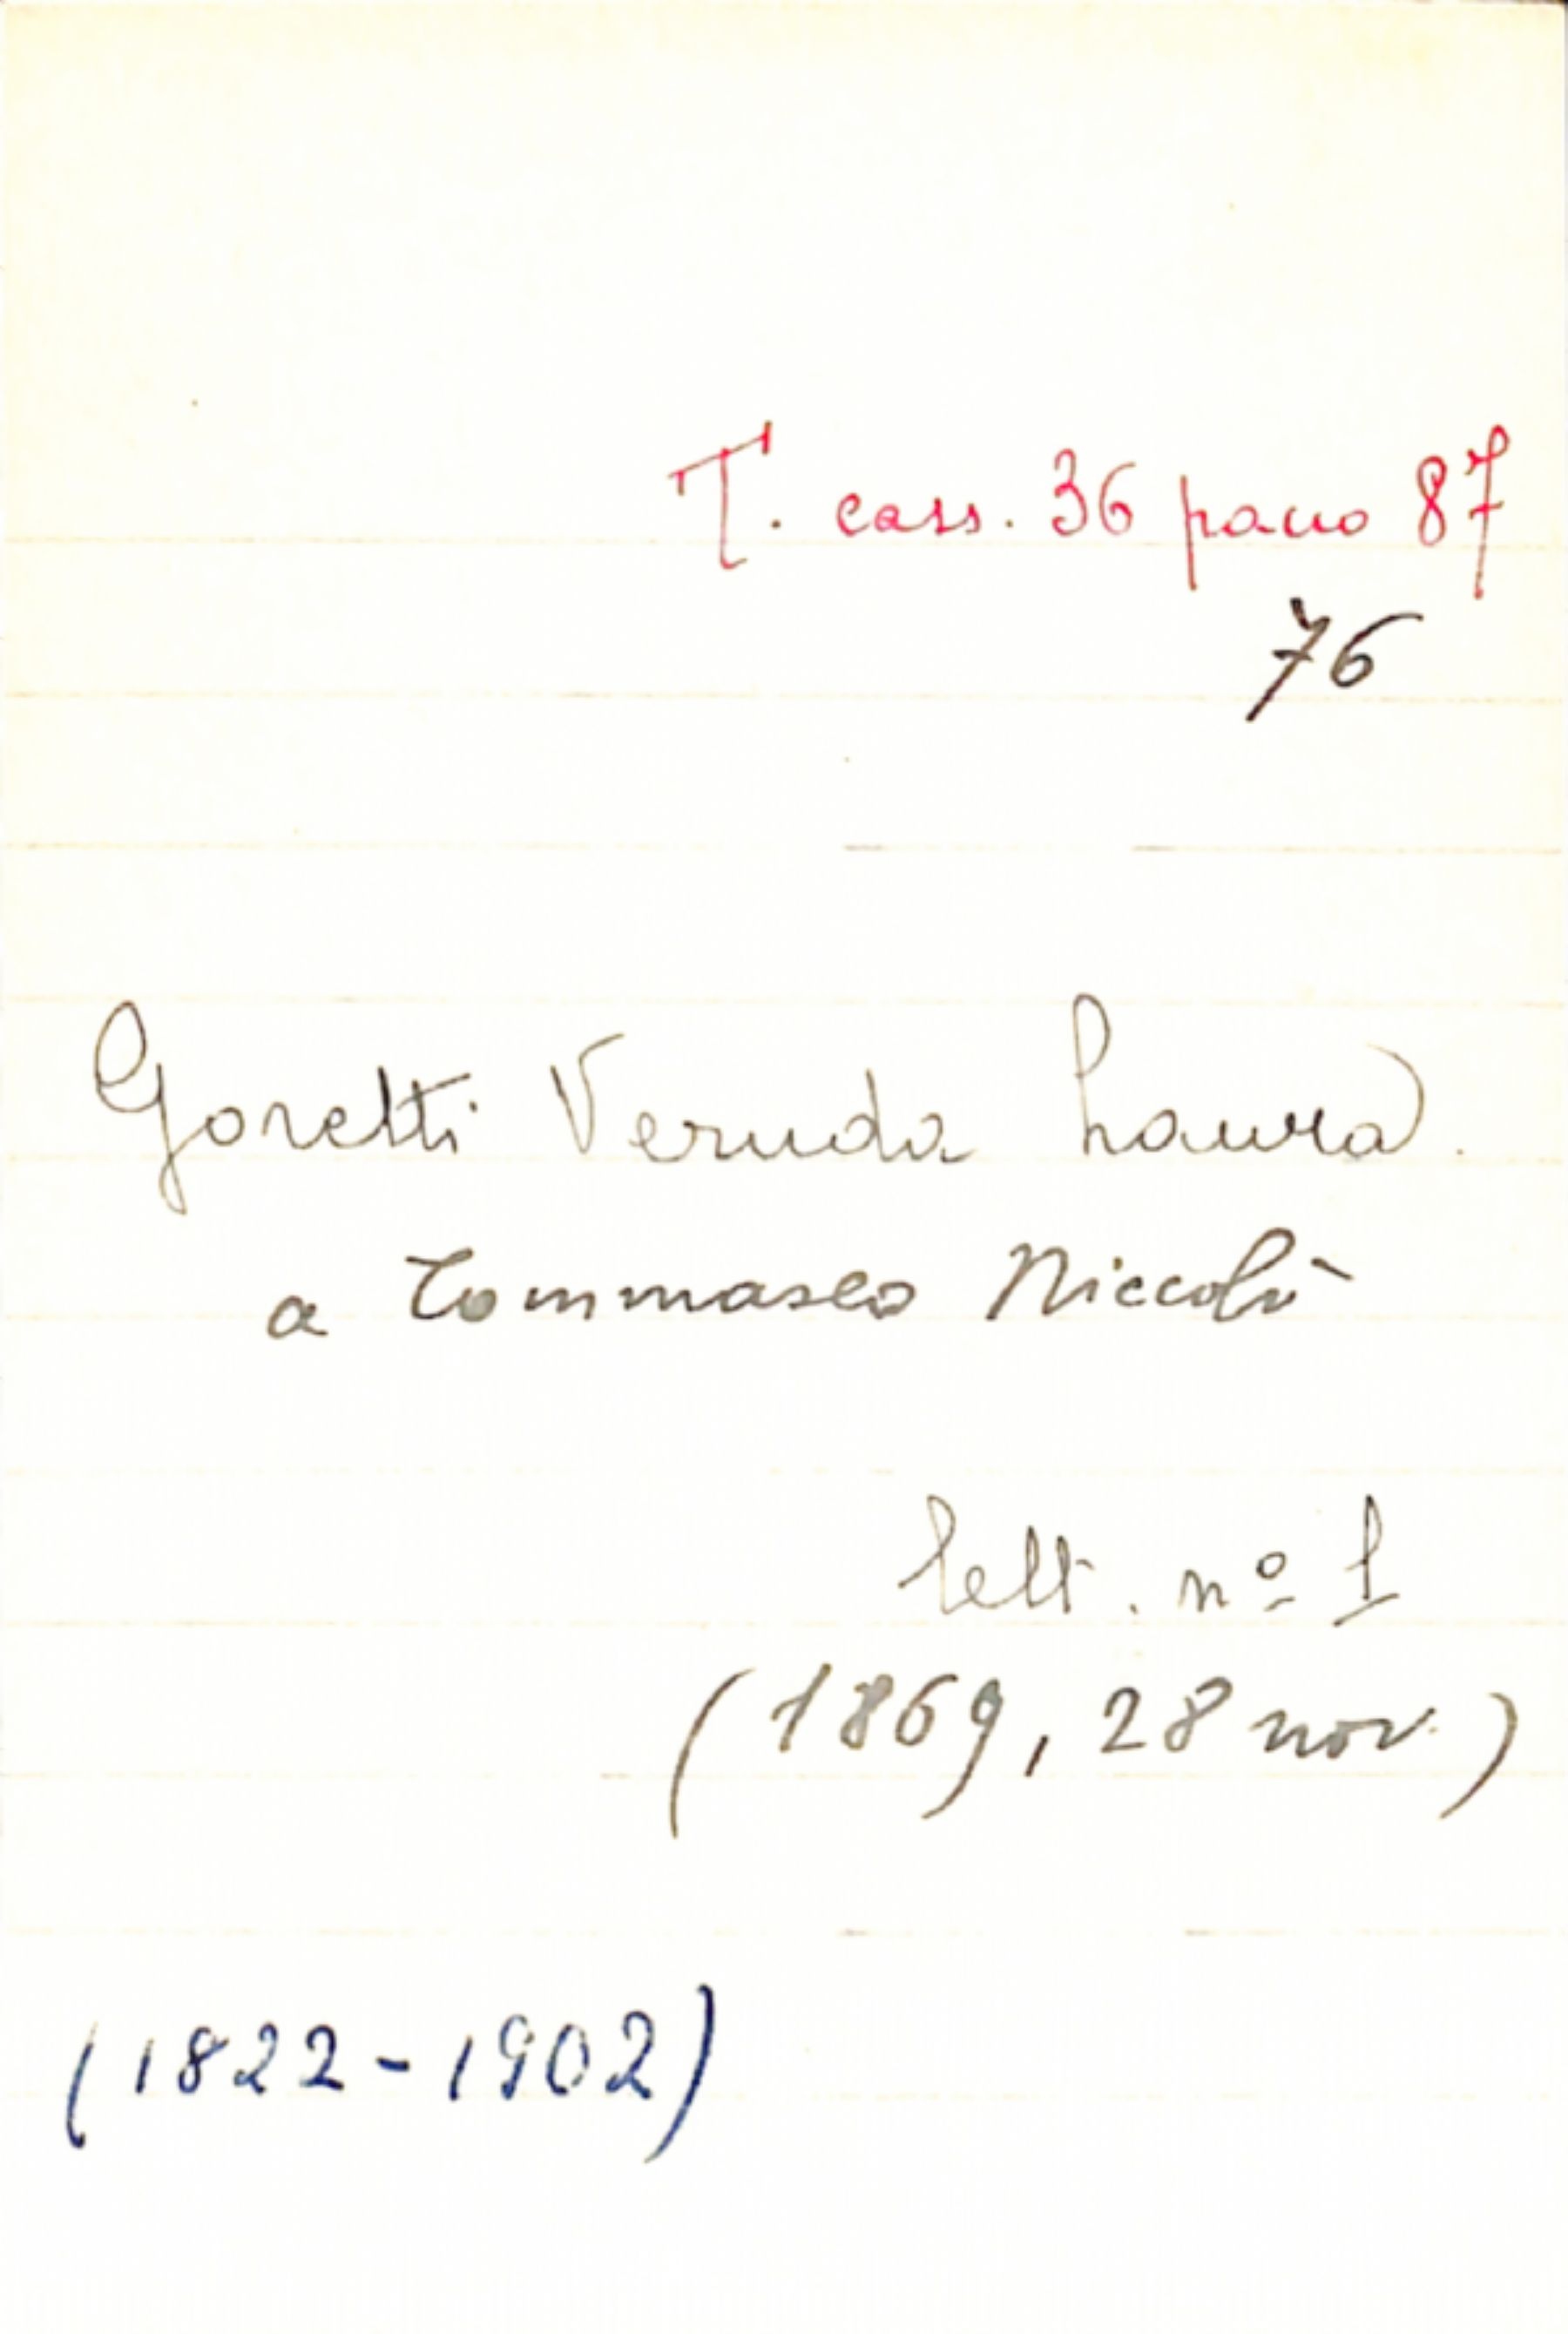 T. cass. 36 pacco 87
76
Goretti Veruda Laura.
a Tommaseo Niccolò
lett. nº 1
(1869, 28 nov.)
(1822-1902)